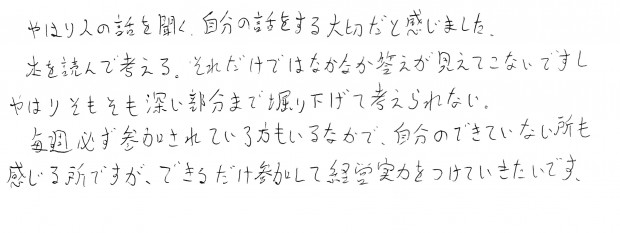 やはり人の話を聞く、自分の話をする大切だと感じました、
本を読んで考える。それだけではなかなか答えが見えてこないですし
やはりそもそも深い部分まで堀り下げて考えられない。
毎週必ず参加されている方もいるなかで、自分のできていない所も
感じる所ですが、できるだけ参加して経営実力をつけていきたいです、